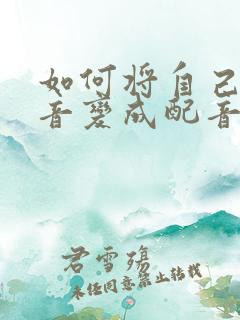 如何将自己
音变成配音
君雪殇
未经同意禁止转载